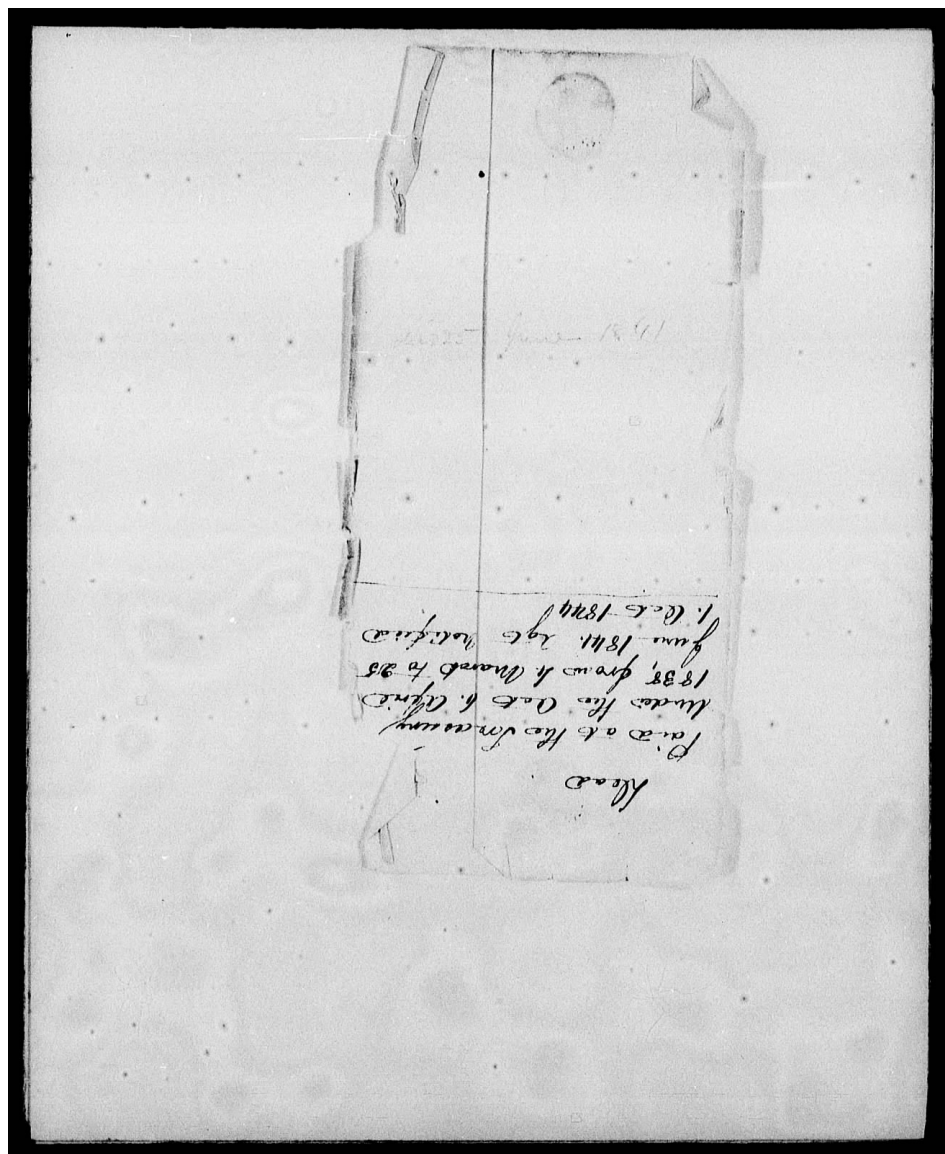 Dead
Paid at the Treasury
under the Act 6. April
1838, from 4 March to 25
June 1841. Agt notified
1. Oct 1844